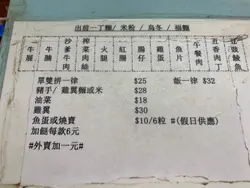 出前一丁麵/ 米粉 / 烏冬 / 福麵
沙爹牛肉
榨菜肉絲
火腿
紅腸
腸仔
雞蛋
魚片
午餐肉
五香肉丁
豆豉鯪魚
單雙拼一律 $25 飯一律 $32
豬手/ 雞翼麵或米 $28
油菜 $18
雞翼 $30
魚蛋或燒賣 $10/6粒 #(假日供應)
加餸每款6元
#外賣加一元#